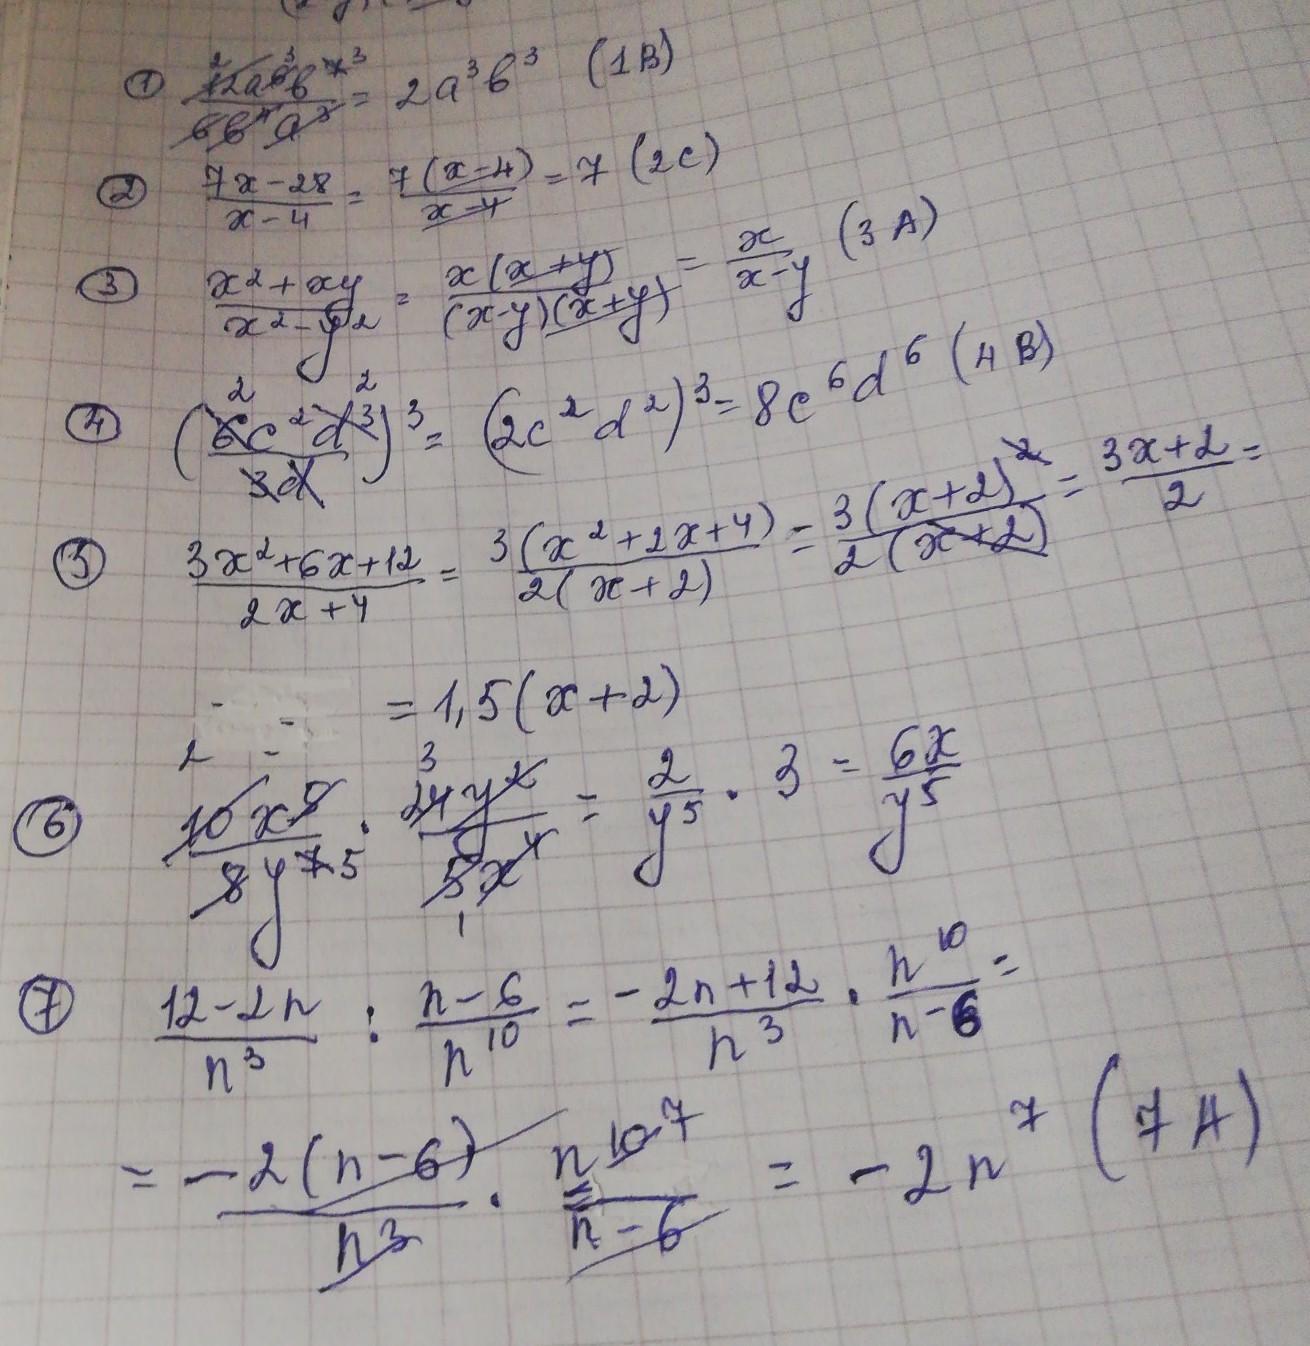 ① 12a⁶b⁷/6b⁴a³ = 2a³b³ (1B)
② 7x-28/x-4 = 7(x-4)/x-4 = 7 (2C)
③ x²+xy/x²-y² = x(x+y)/(x-y)(x+y) = x/x-y (3A)
④ (6c²d³/3d)³ = (2c²d²)³ = 8c⁶d⁶ (4B)
⑤ 3x²+6x+12/2x+4 = 3(x²+2x+4)/2(x+2) = 3(x+2)²/2(x+2) = 3x+2/2 =
= 1,5(x+2)
⑥ 10x⁵/8y⁷ · 24y²/5x⁴ = 2/y⁵ · 3 = 6x/y⁵
⑦ 12-2n/n³ : n-6/n¹⁰ = -2n+12/n³ · n¹⁰/n-6 =
= -2(n-6)/n³ · n¹⁰/n-6 = -2n⁷ (7A)